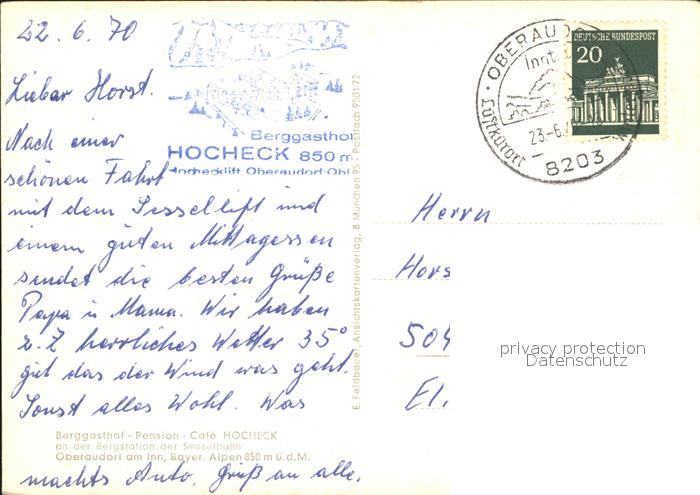 22.6.70
Lieber Horst.
Nach einer
schönen Fahrt
mit dem Sessellift und
einem guten Mittagessen
sendet die besten Grüße
Papa u Mama. Wir haben
z.Z herrliches Wetter 35°
gut das der Wind was geht.
Sonst alles Wohl. Was
machts Auto. Gruß an alle.
Berggasthof
HOCHECK 850 m
Hochecklift Oberaudorf Obb
Berggasthof - Pension - Café HOCHECK
an der Bergstation der Sesselbahn
Oberaudorf am Inn, Bayer. Alpen 850 m ü.d.M.
E. Feldbauer, Ansichtskartenverlag, 8 München 95 - Postfach 950172
OBERAUDO
Innt
Luftkurort
23.-6.
8203
DEUTSCHE BUNDESPOST
20
Herrn
Hors
504
El.
privacy protection
Datenschutz